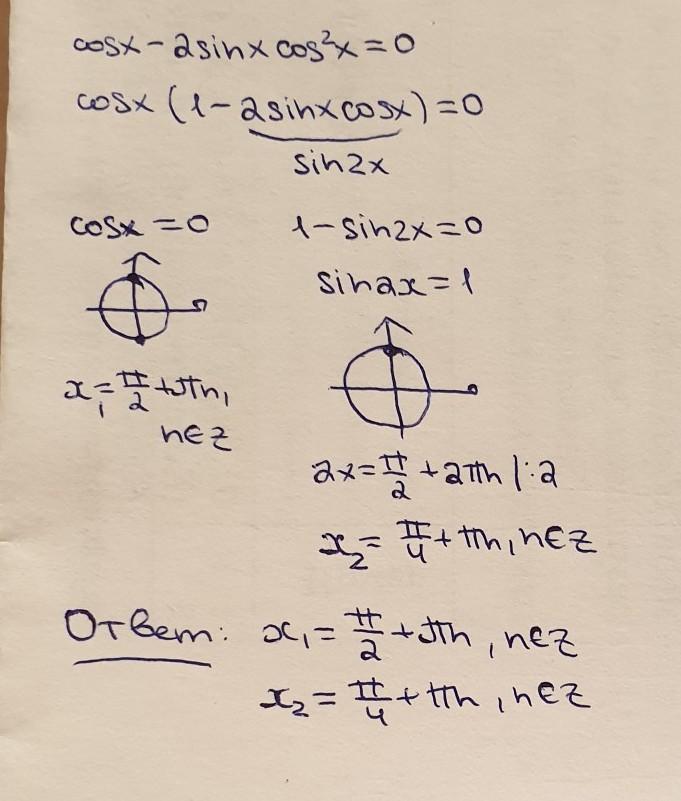 cosx - 2sinx cos²x = 0
cosx (1 - 2sinxcosx) = 0
sin2x
cosx = 0
1 - sin2x = 0
sin2x = 1
x₁ = π/2 + πn,
n∈Z
2x = π/2 + 2πn |:2
x₂ = π/4 + πn, n∈Z
Ответ: x₁ = π/2 + πn, n∈Z
x₂ = π/4 + πn, n∈Z